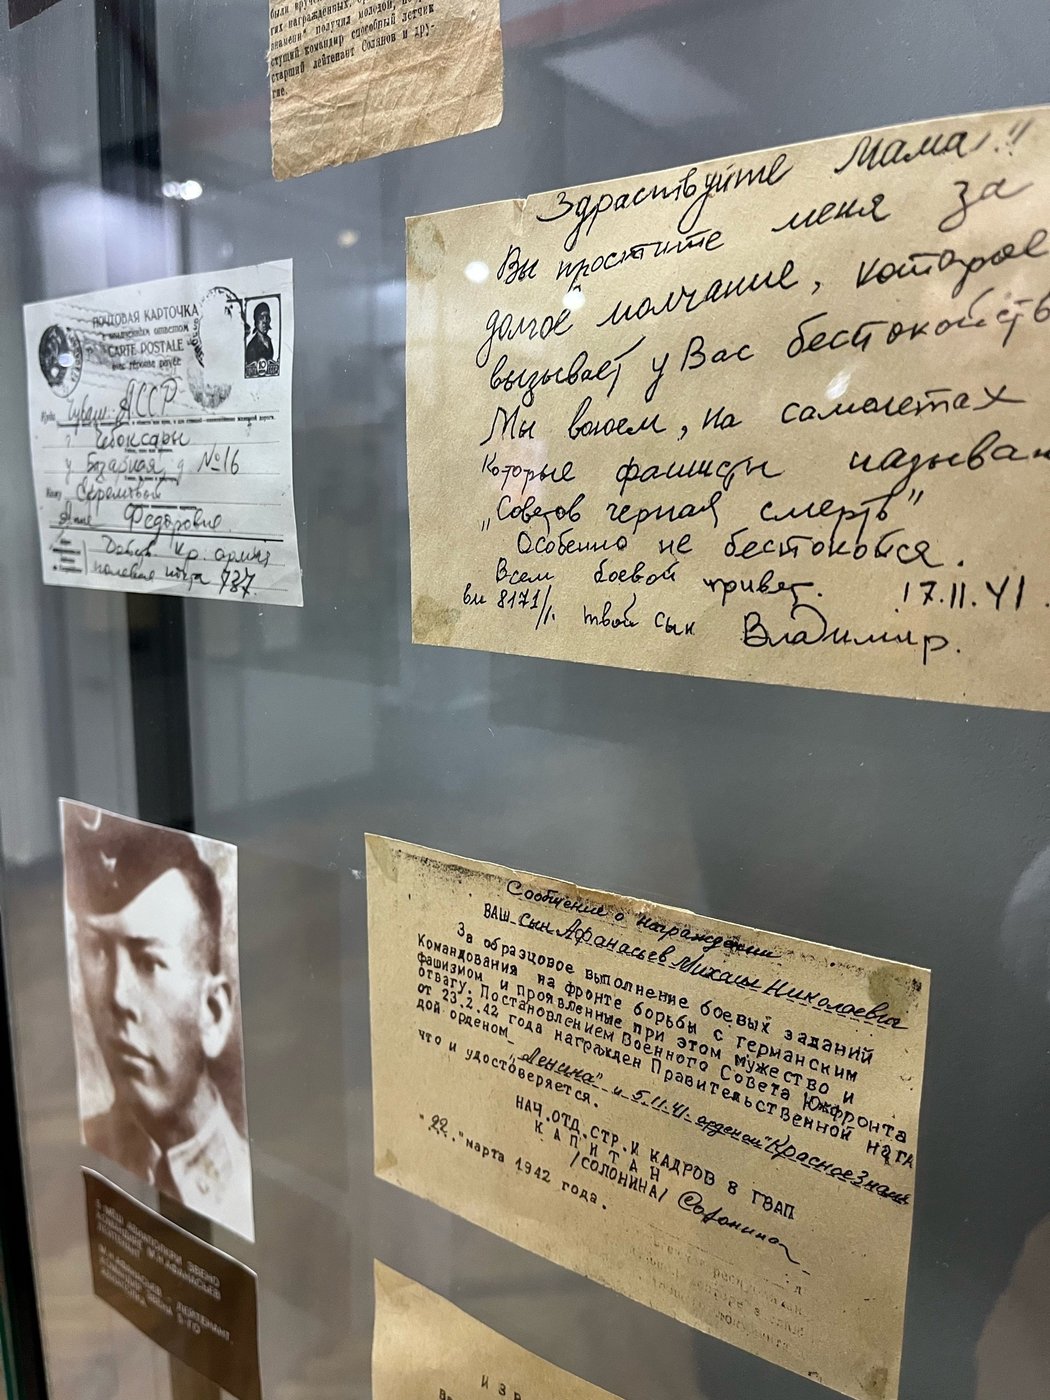 были вруче
гих награждённых, о
знамени" получил молодой,
стущий командир способный летчик
старший лейтенант Солянов и дру-
гие.
Здраствуйте Мама!!!
Вы простите меня за
долгое молчание, которое
вызывает у Вас бестокойств
Мы воюем, на самолетах
Которые фашисты называю
"Советов черная смерть"
Особенно не бестокойся.
Всем боевой привет. 17.11.41
твой сын Владимир.
ПОЧТОВАЯ КАРТОЧКА
с оплаченным ответом
CARTE POSTALE
avec réponse payée
Куда Чуваш АССР
г. Чебоксары
у Базарная, д №16
Кому
Анне Федоровне
Действ. Кр. армия
полевая почта 737.
Сообщение о награждении
ВАШ сын Афанасьев Михаил Николаевич
За образцовое выполнение боевых заданий
Командования на фронте борьбы с германским
фашизмом и проявленные при этом мужество и
отвагу. Постановлением Военного Совета Южфронта
от 23.2.42 года награжден Правительственной нага
дой орденом "Ленина" и 5.11.41 орденом "Красное Знамя
что и удостоверяется.
НАЧ.ОТД.СТР.И КАДРОВ 8 ГВАП
КАПИТАН
/СОЛОНИНА/ Солонина
"22" марта 1942 года.
ИЗВ